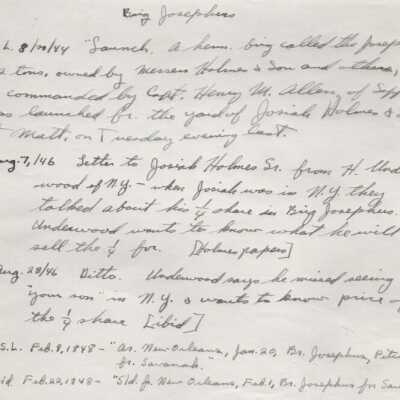 Brig Josephus
L. 8/10/44 "Launch. A herm. brig called the Joseph
tons, owned by Messrs Holmes & Son and others,
commanded by Capt. Henry M. Allen, of Sipp
as launched fr. the yard of Josiah Holmes &
Matt. on Tuesday evening last.
ug. 7, /46 Letter to Josiah Holmes Sr. from H. Under
wood of N.Y. - when Josiah was in N.Y. they
talked about his ¼ share in Brig Josephus.
Underwood wants to know what he will
sell the ¼ for. [Holmes papers]
Aug. 28/46 Ditto. Underwood says he missed seeing
"your son" in N.Y. & wants to know price
the ¼ share [ibid]
S.L. Feb. 9, 1848 - "Ar. New Orleans, Jan. 29, Br. Josephus,
fr. Savanah."
id Feb. 22, 1848 - "Sld. fr. New Orleans, Feb. 1, Br. Josephus for Sav